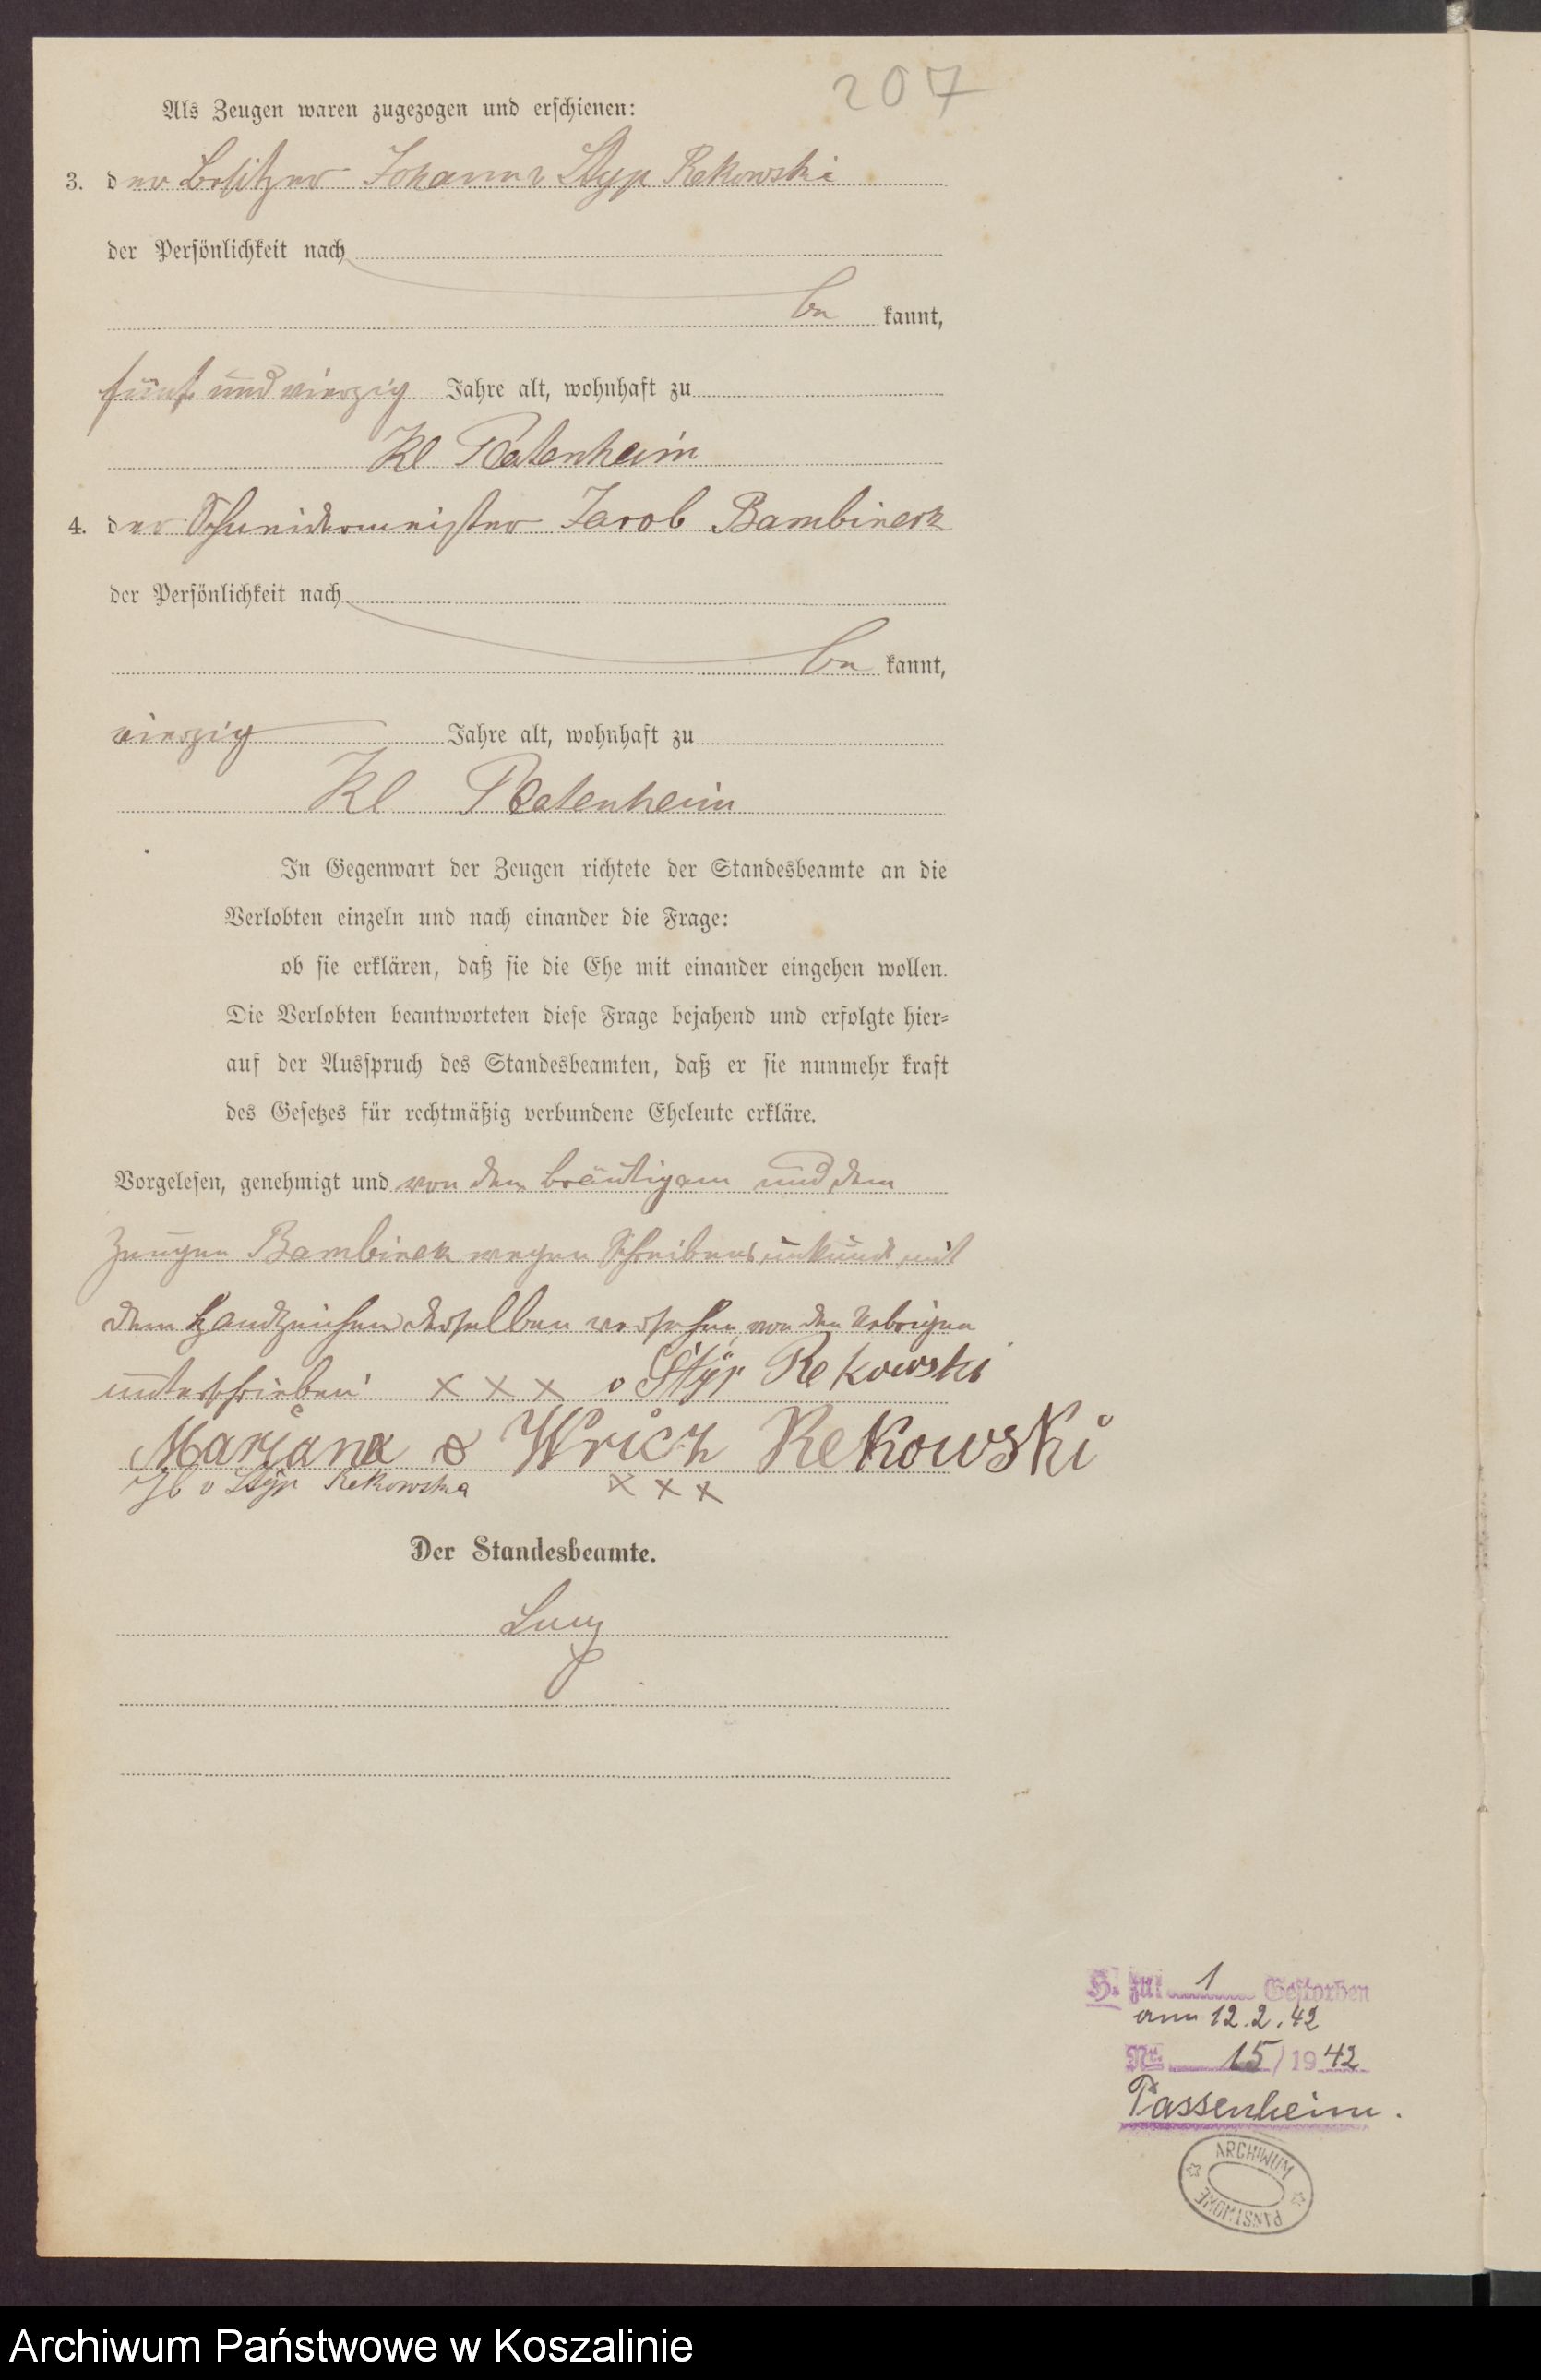 207
Als Zeugen waren zugezogen und erschienen:
3. der Besitzer Johann v Styp Rekowski
der Persönlichkeit nach
be kannt,
fünf und vierzig Jahre alt, wohnhaft zu
Kl Platenheim
4. der Schneidermeister Jacob Bambinek
der Persönlichkeit nach
be kannt,
vierzig Jahre alt, wohnhaft zu
Kl Platenheim
In Gegenwart der Zeugen richtete der Standesbeamte an die
Verlobten einzeln und nach einander die Frage:
ob sie erklären, daß sie die Ehe mit einander eingehen wollen.
Die Verlobten beantworteten diese Frage bejahend und erfolgte hier=
auf der Ausspruch des Standesbeamten, daß er sie nunmehr kraft
des Gesetzes für rechtmäßig verbundene Eheleute erkläre.
Vorgelesen, genehmigt und von dem Bräutigam und dem
Zeugen Bambinek wegen Schreibensunkunde mit
dem Handzeichen derselben versehen, von den Uebrigen
unterschrieben x x x v Styp Rekowski
Marjana Rekowski
v Styp Rekowska x x x
Der Standesbeamte.
H. zu: 1 Gestorben
am 12.2.42
Nr. 15/1942
Passenheim.
ARCHIWUM
PAŃSTWOWE
Archiwum Państwowe w Koszalinie